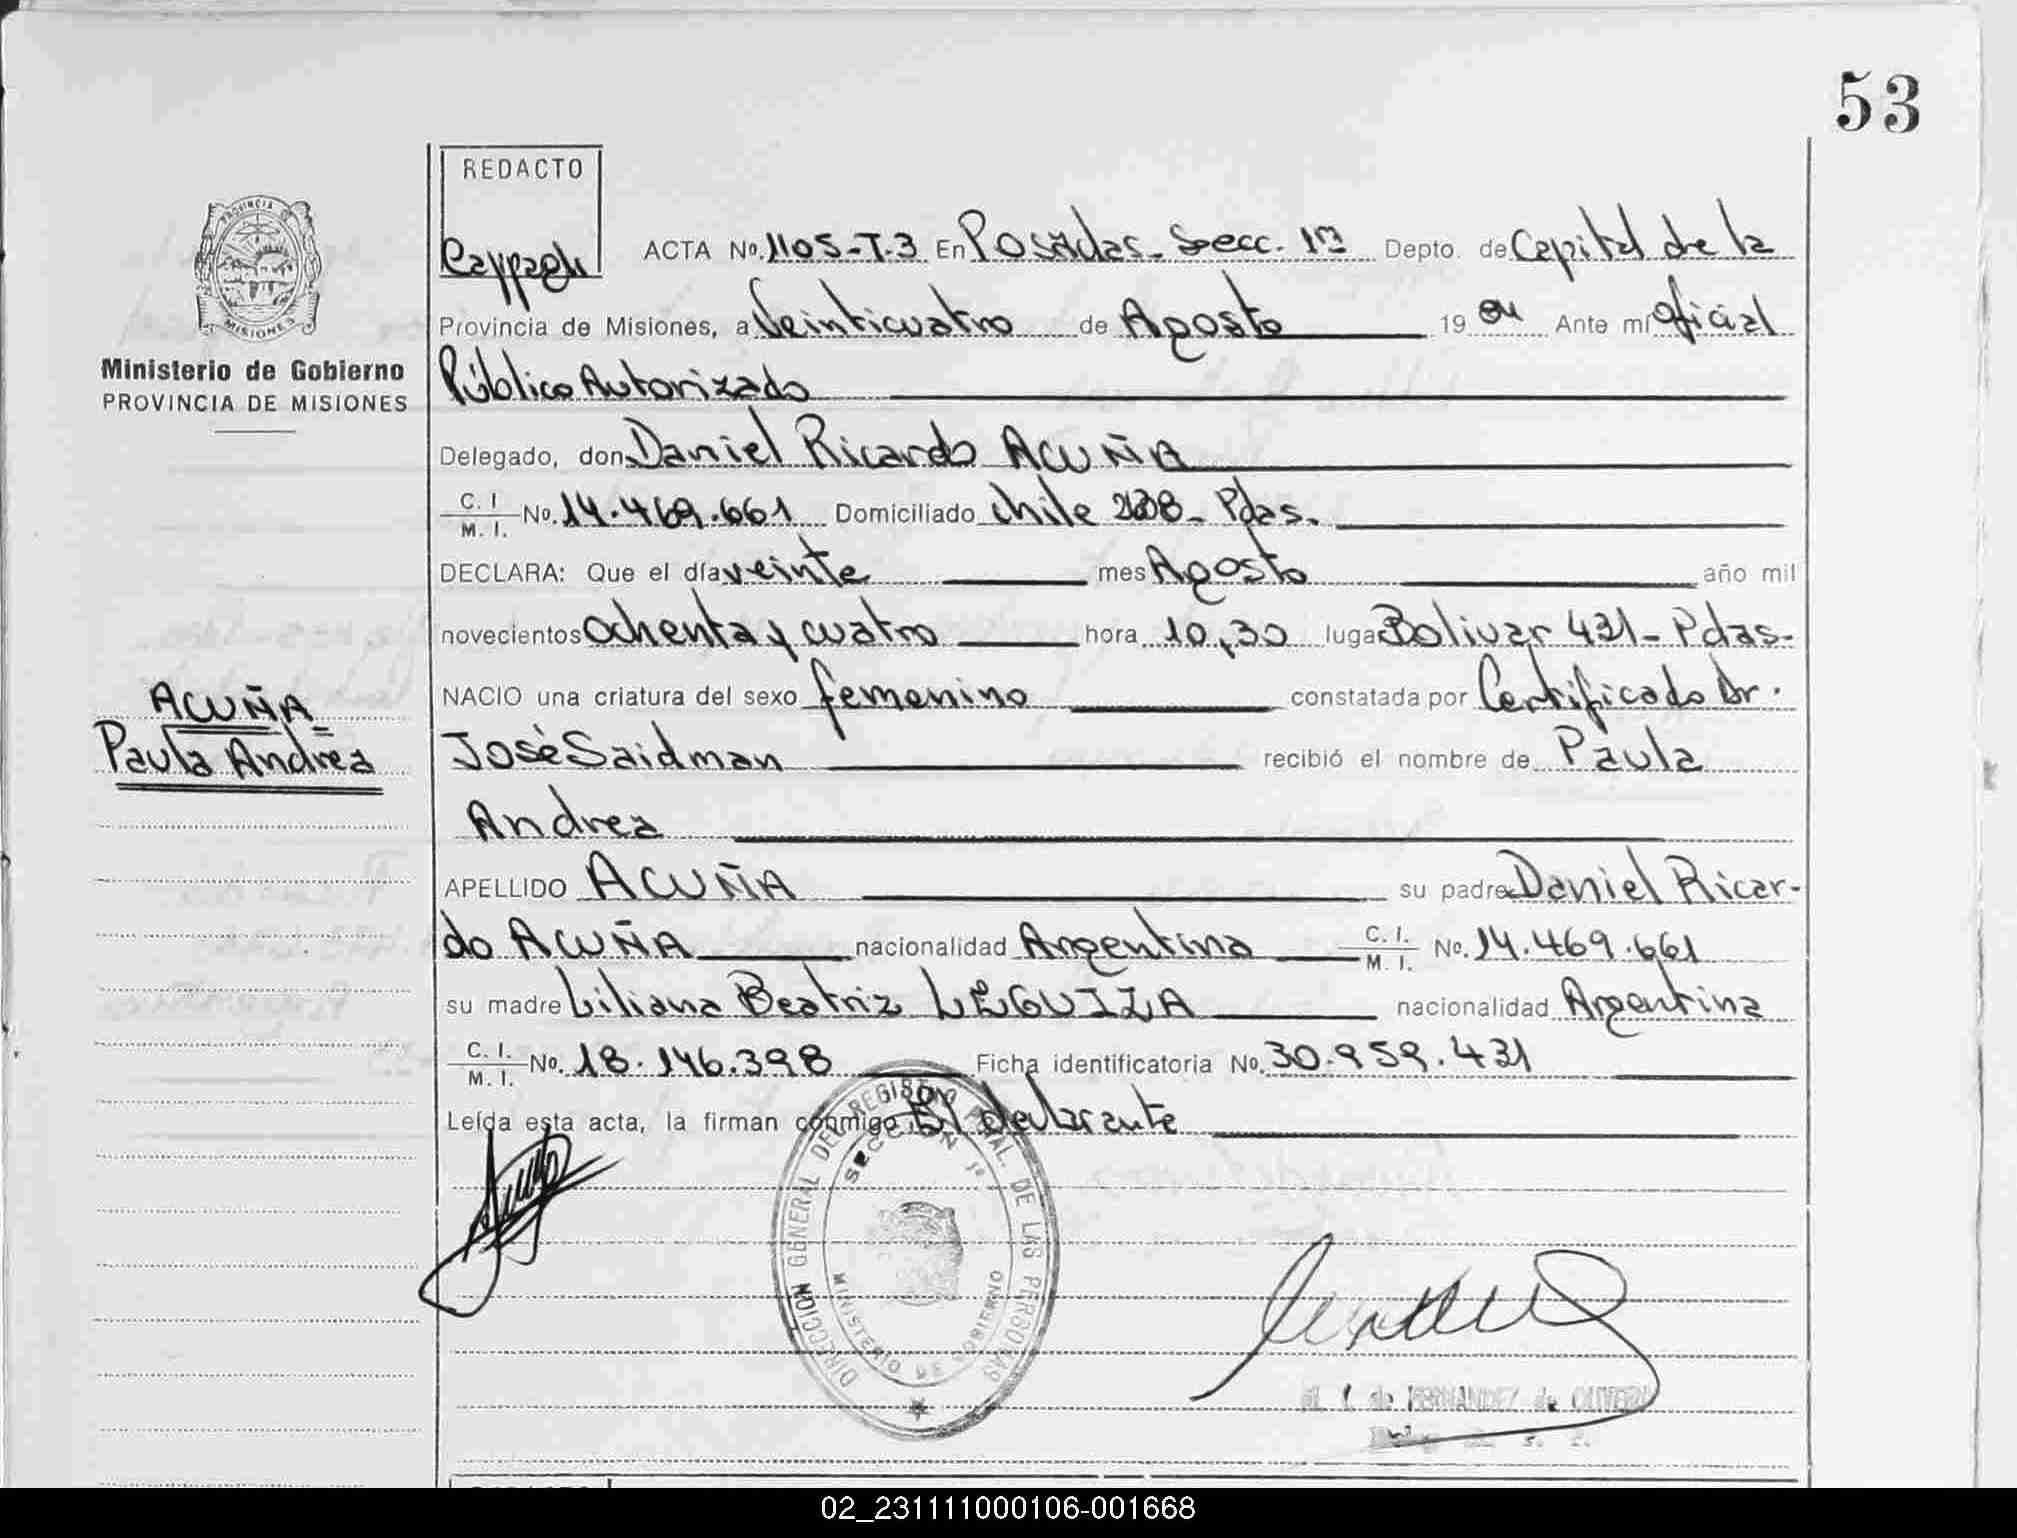 53
REDACTO
ACTA No. 1105-T.3 En Posadas - Secc. 1ª Depto. de Capital de la
Provincia de Misiones, a Veinticuatro de Agosto 19 84 Ante mí Oficial
Público Autorizado
Delegado, don Daniel Ricardo ACUÑA
C. I. M. I. No. 14.469.661 Domiciliado Chile - Pdas.
DECLARA: Que el día veinte mes Agosto año mil
novecientos ochenta y cuatro hora 10,30 lugar Bolivar 431 - Pdas-
NACIO una criatura del sexo femenino constatada por Certificado Dr.
José Saidman recibió el nombre de Paula
Andrea
APELLIDO ACUÑA su padre Daniel Ricar-
do ACUÑA nacionalidad Argentina C. I. M. I. No. 14.469.661
su madre Liliana Beatriz LEGUIZA nacionalidad Argentina
C. I. M. I. No. 18.146.398 Ficha identificatoria No. 30.959.431
Leída esta acta, la firman conmigo El declarante
PROVINCIA DE MISIONES
Ministerio de Gobierno
PROVINCIA DE MISIONES
ACUÑA
Paula Andrea
DIRECCION GENERAL DEL REGISTRO PCIAL. DE LAS PERSONAS
SECCION 1ª
MINISTERIO DE GOBIERNO
de FERNANDEZ de OLIVERA
02_231111000106-001668